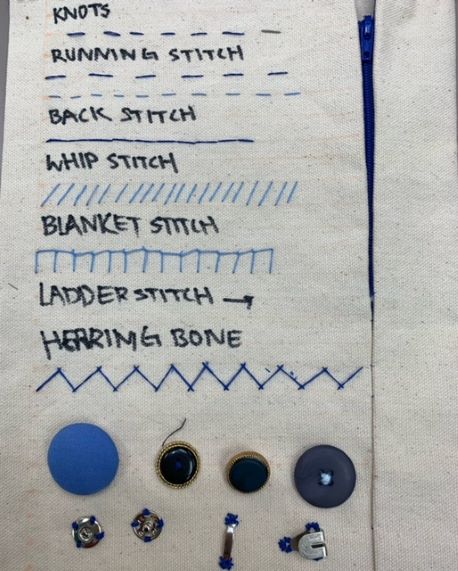 KNOTS
RUNNING STITCH
BACK STITCH
WHIP STITCH
BLANKET STITCH
LADDER STITCH →
HERRING BONE